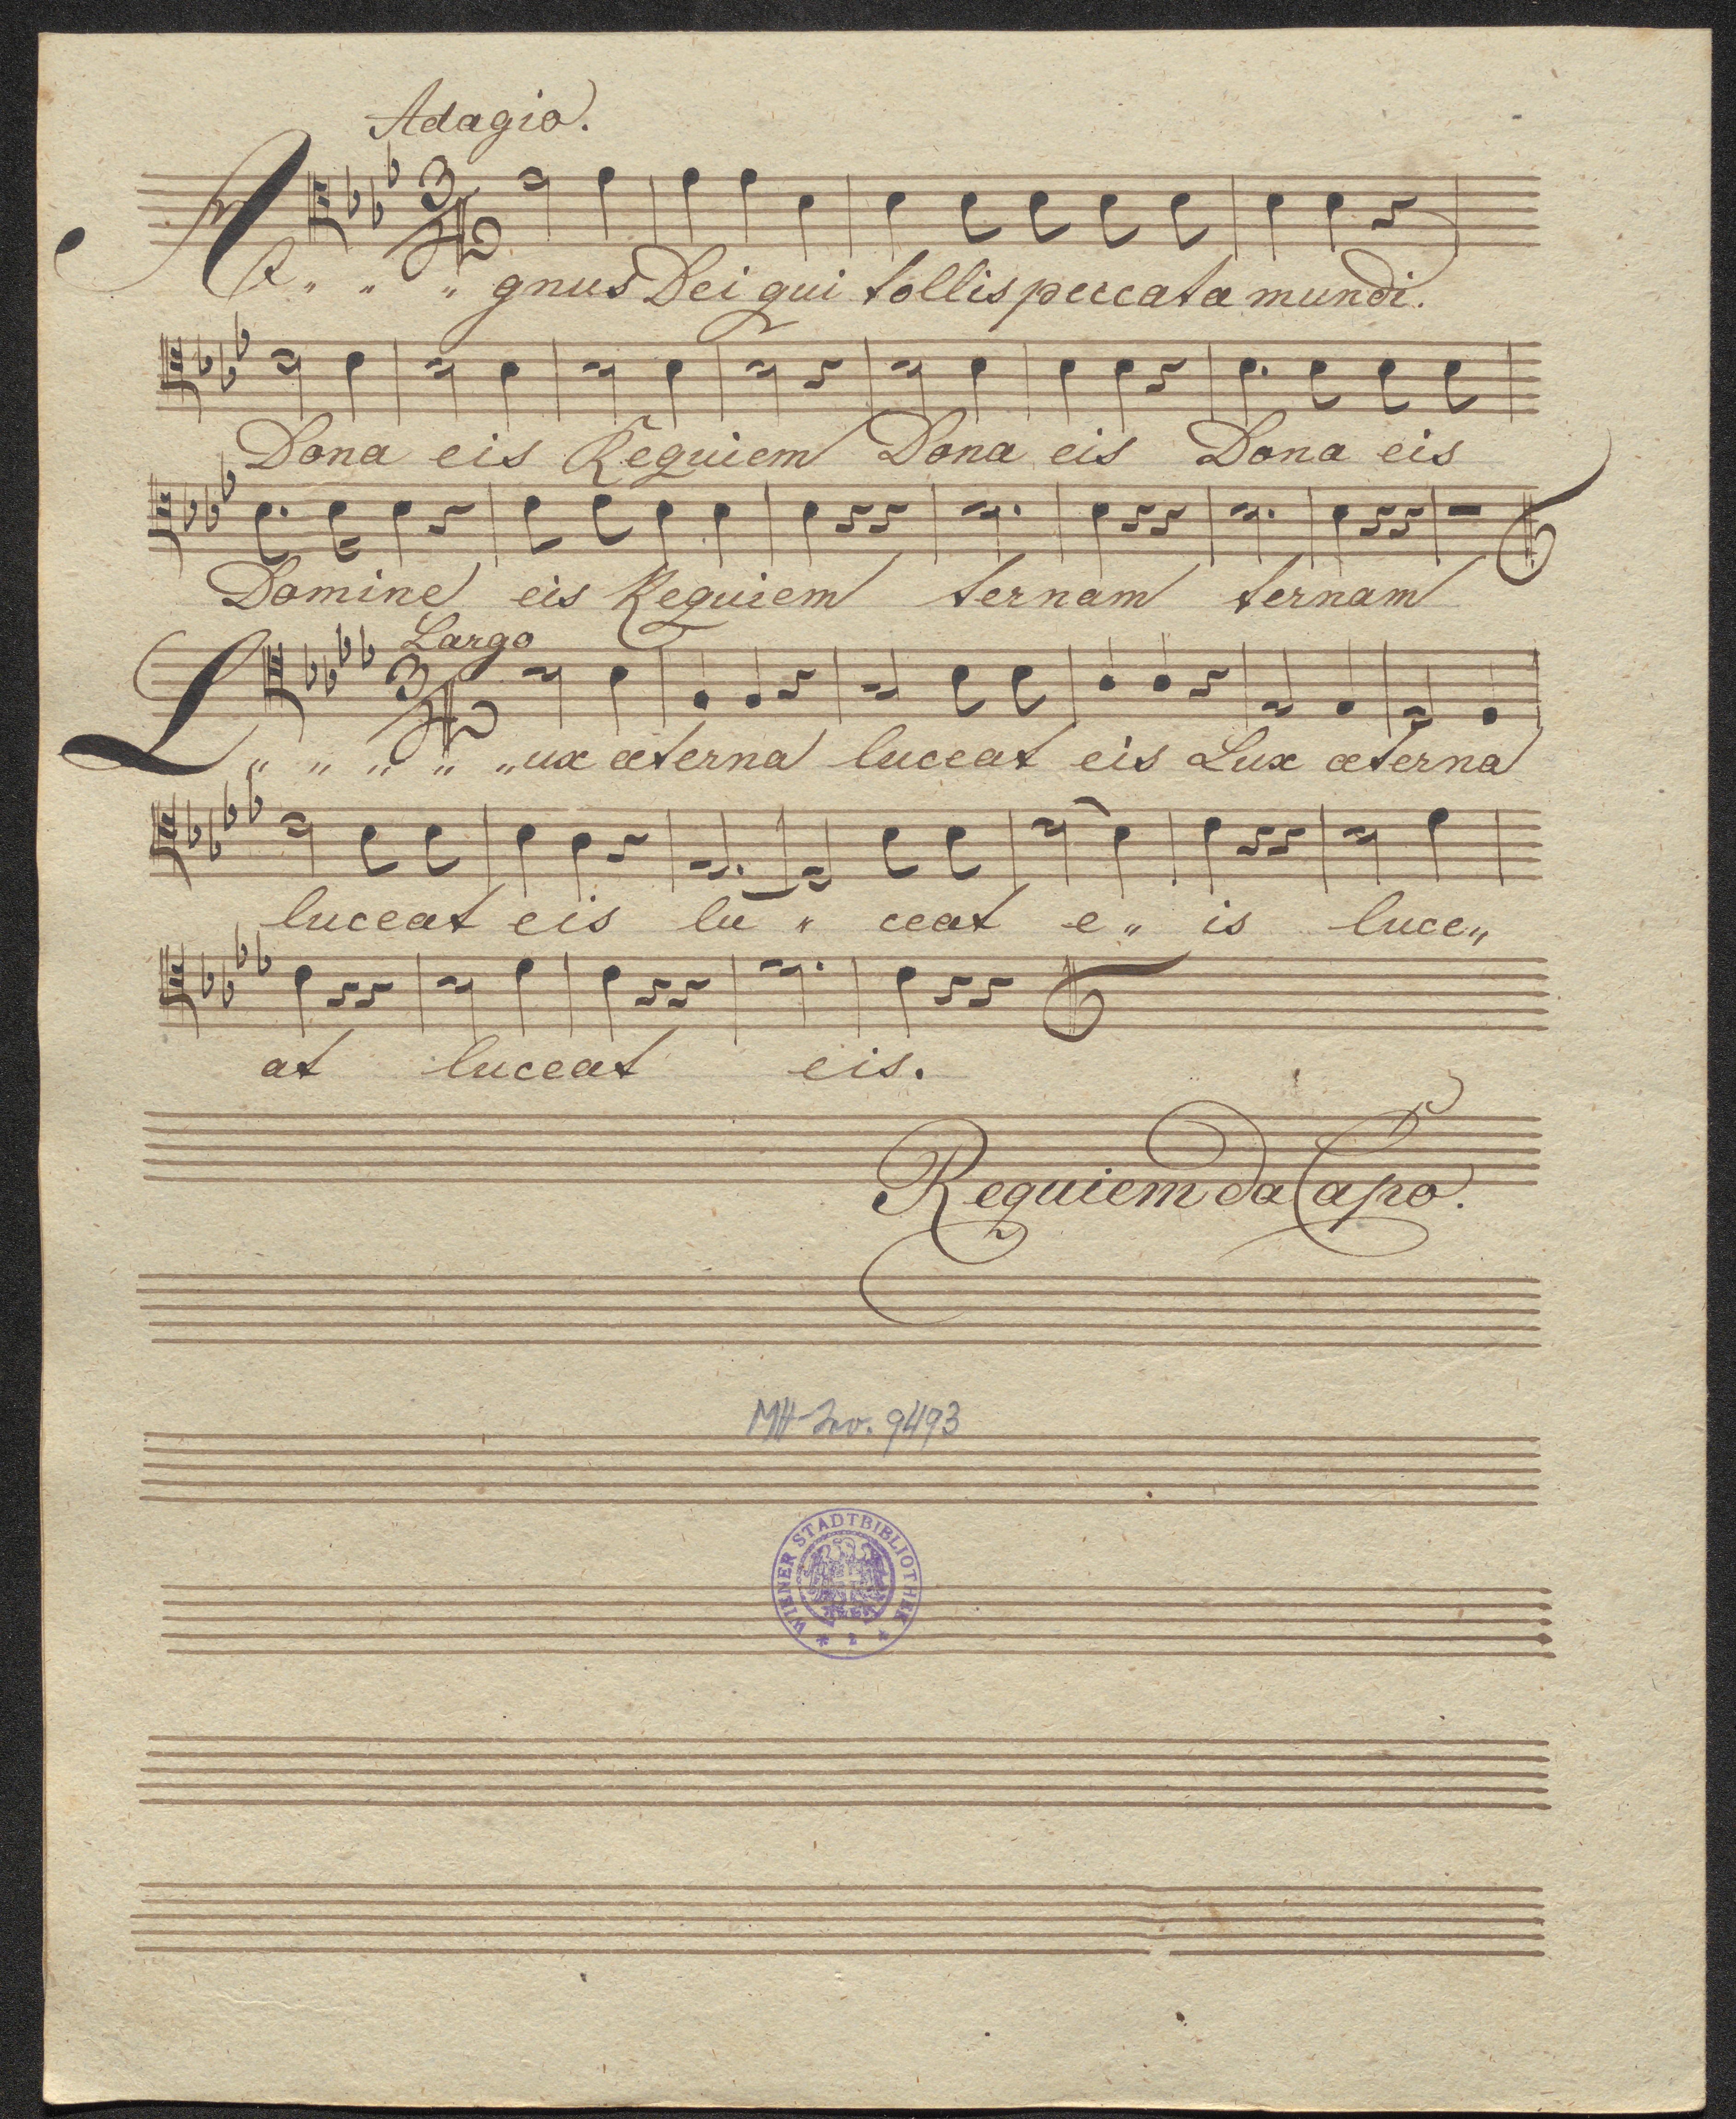 Adagio.
A " " " gnus Dei qui tollis peccata mundi.
Dona eis Requiem Dona eis Dona eis
Domine eis Requiem ternam ternam
Largo
L " " " " "ux æterna luceat eis Lux æterna
luceat eis lu " ceat e " is luce "
at luceat eis.
Requiem da Capo.
MH-Inv. 9493
WIENER STADTBIBLIOTHEK * 2 *